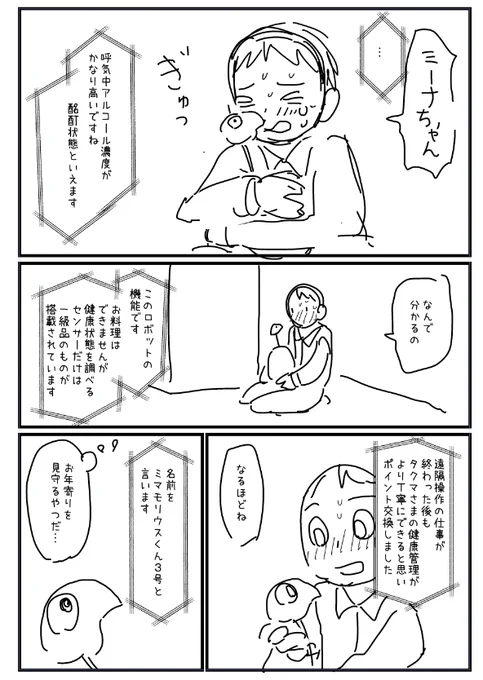 …
ミーナちゃん
ぎゅっ
呼気中アルコール濃度が
かなり高いですね
酩酊状態といえます
なんで
分かるの
このロボットの
機能です
お料理は
できませんが
健康状態を調べる
センサーだけは
一級品のものが
搭載されています
遠隔操作の仕事が
終わった後も
タクマさまの健康管理が
より丁寧にできると思い
ポイント交換しました
なるほどね
名前を
ミマモリウスくん3号と
言います
お年寄りを
見守るやつだ…